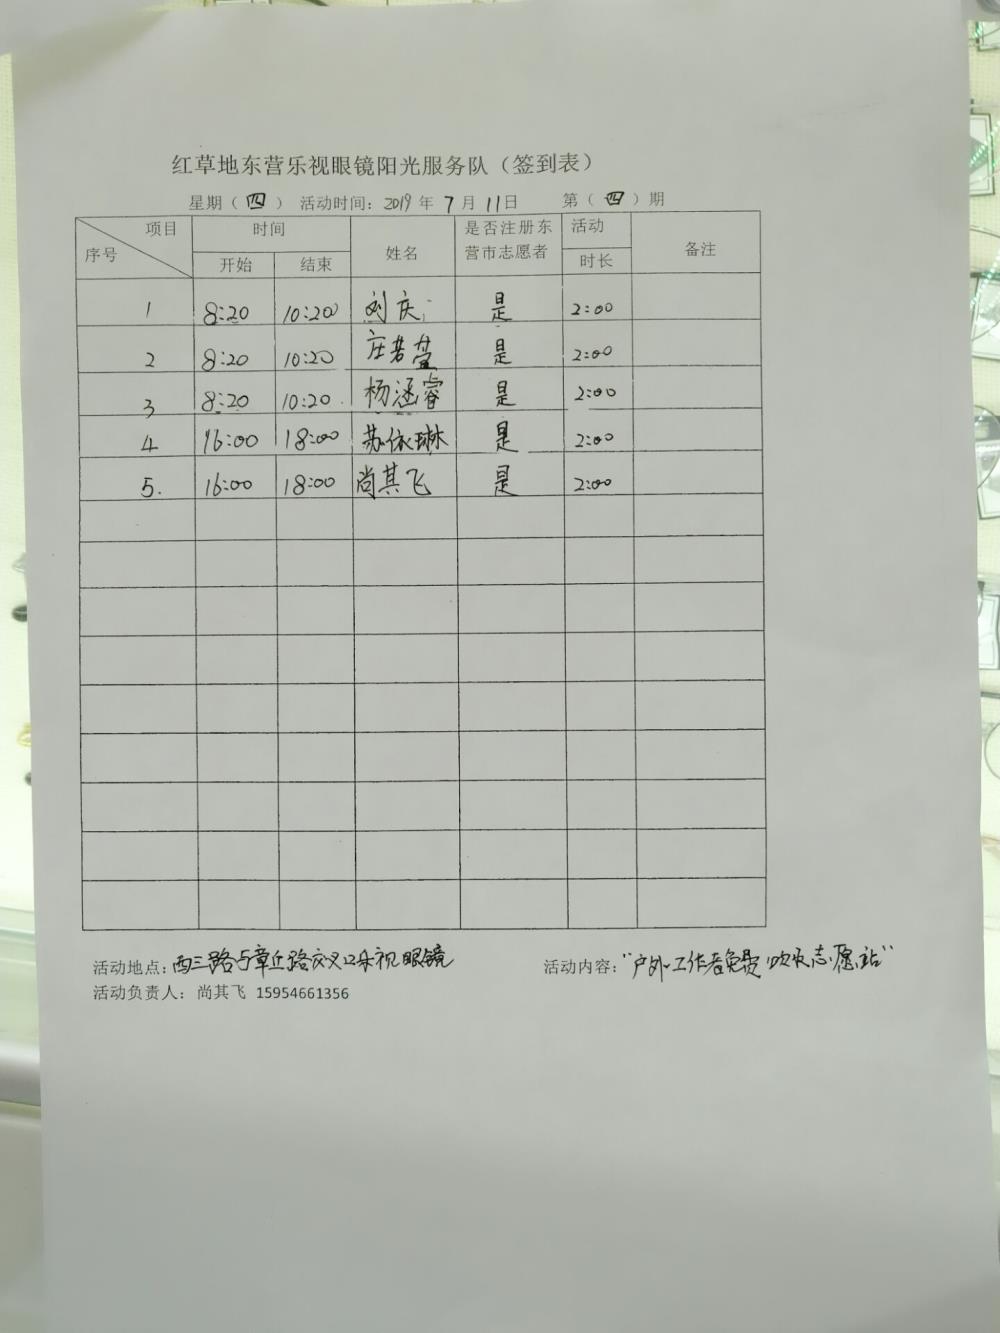 红草地东营乐视眼镜阳光服务队（签到表）
星期（四） 活动时间：2019年7月11日 第（四）期
项目 序号 时间 开始 结束 姓名 是否注册东营市志愿者 活动时长 备注
1 8:20 10:20 刘庆 是 2:00
2 8:20 10:20 庄若莹 是 2:00
3 8:20 10:20 杨涵睿 是 2:00
4 16:00 18:00 苏依琳 是 2:00
5. 16:00 18:00 尚其飞 是 2:00
活动地点：西三路与章丘路交叉口乐视眼镜 活动内容："户外工作者免费饮水志愿站"
活动负责人：尚其飞 15954661356